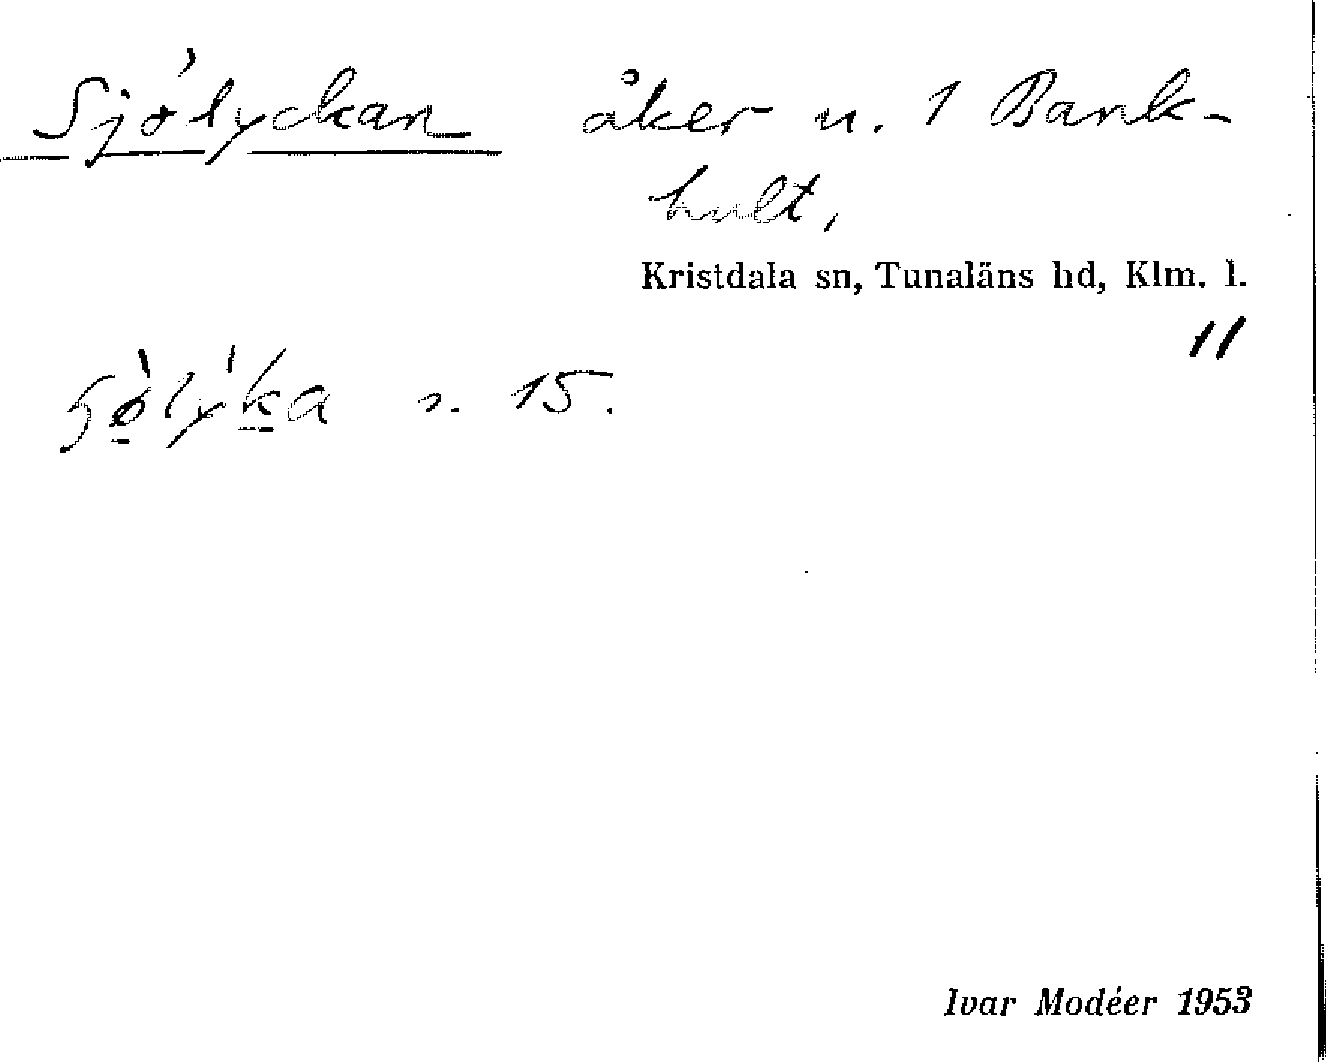 Sjölyckan åker n. 1 Bank-
hult,
Kristdala sn, Tunaläns hd, Klm. l.
11
s. 15.
Ivar Modéer 1953